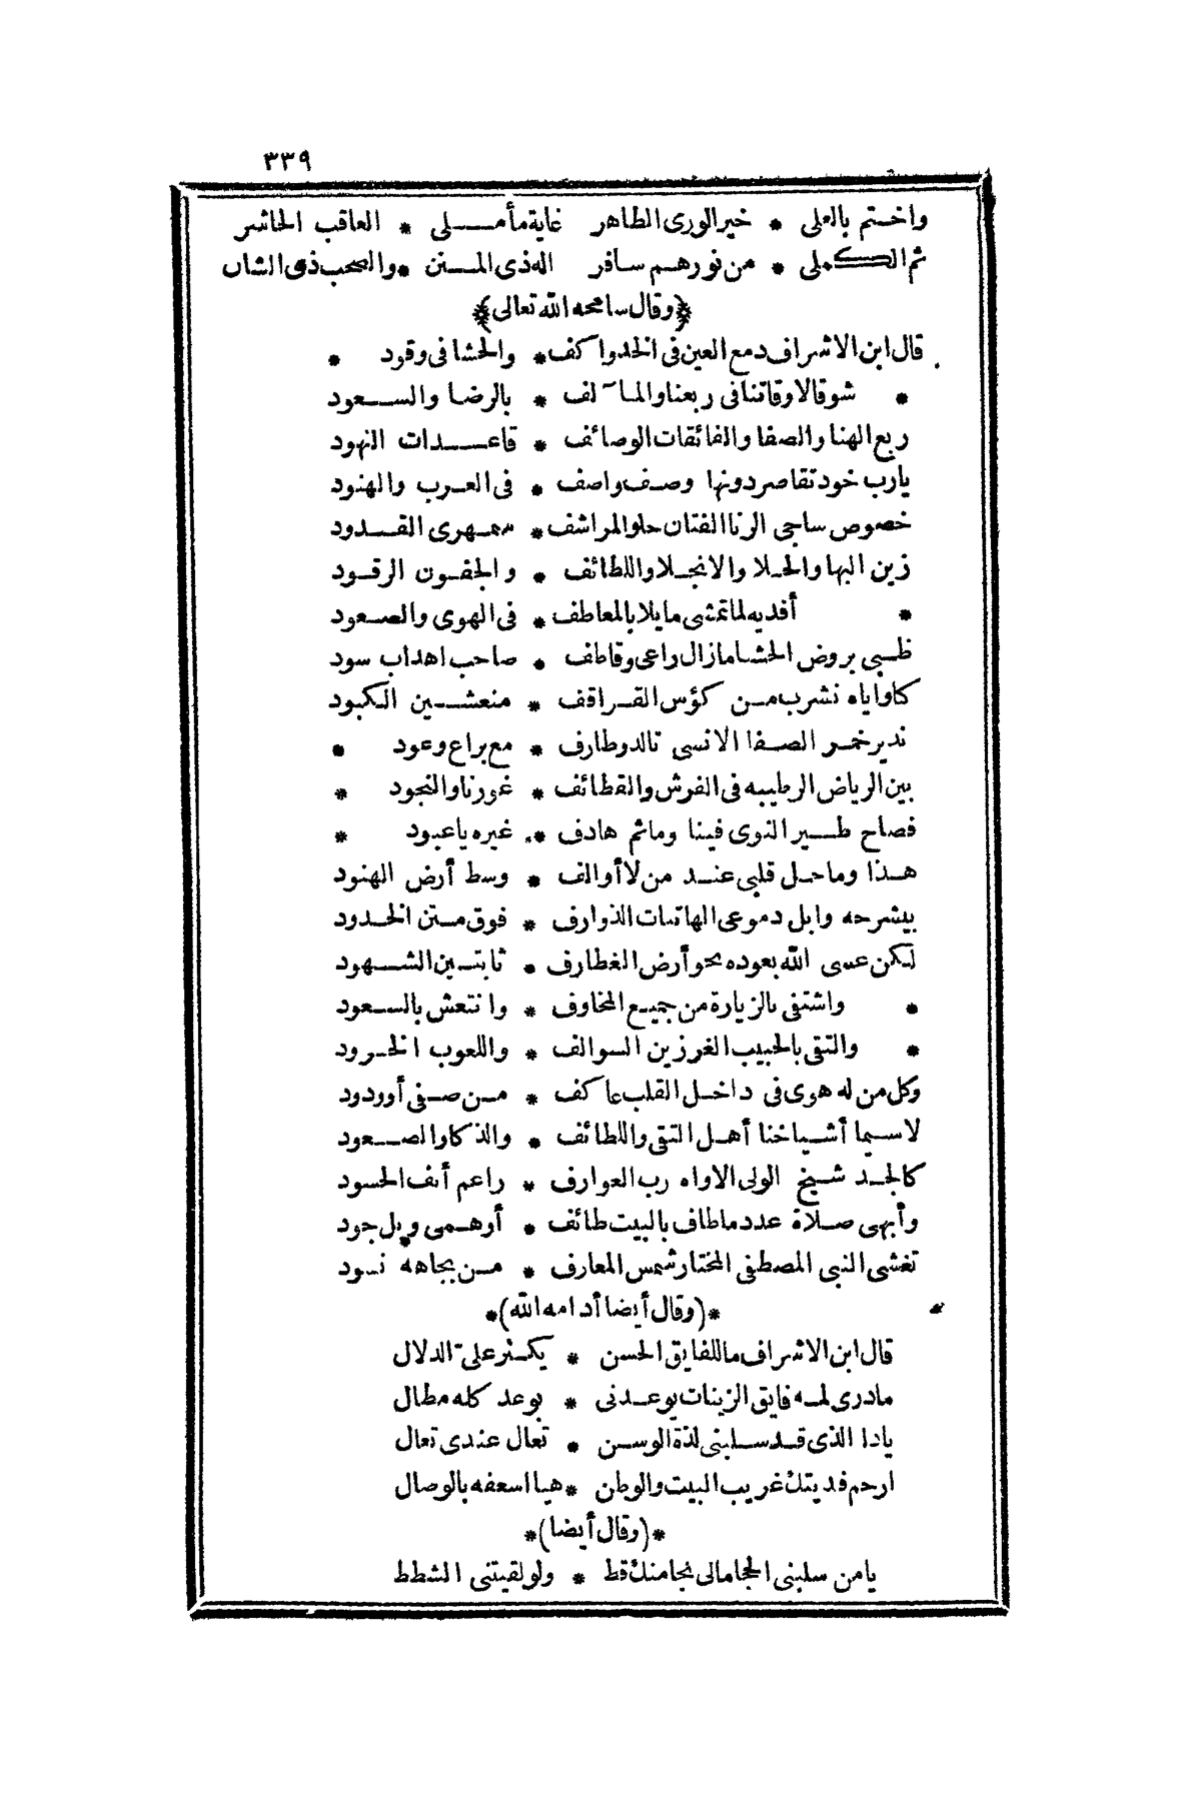 ٣٣٩
واختم بالعلي * خير الورى الطاهر غاية مأمــلى * العاقب الحاشر
ثم الكملى * من نورهم سافر اله ذى المنن * والصحب ذى الشان
﴿وقال سامحه الله تعالى﴾
قال ابن الاشراف دمع العين فى الخد واكف * والحشا فى وقود *
* شوقالاوقاتنا فى ربعنا والمآلف * بالرضا والسعود
ربع الهنا والصفا والفائقات الوصائف * قاعدات النهود
يارب خود تقاصر دونها وصف واصف * فى العرب والهنود
خصوص ساجى الرنا الفتان حلو المراشف * سمهرى القدود
زين البها والحلا والانجلا واللطائف * والجفون الرقود
* أفديه لما تمشى مايلا بالمعاطف * فى الهوى والصعود
ظبى بروض الحشا مازال راعى وقاطف * صاحب اهداب سود
كا واياه نشرب من كؤس القراقف * منعشين الكبود
ندير خمر الصفا الانسى تالد وطارف * مع براع وعود *
بين الرياض الرطيبه فى الفرش والقطائف * غورنا والنجود *
فصاح طير النوى فينا وماثم هادف * غيره ياعبود *
هذا وما حل قلبى عند من لا أوالف * وسط أرض الهنود
بيشرحه وابل دموعى الهاتنات الذوارف * فوق متن الخدود
لكن عسى الله بعوده نحو أرض الغطارف * ثابتين الشهود
* واشتفى بالزيارة من جميع المخاوف * وانتعش بالسعود
* والتقى بالحبيب الغر زين السوالف * واللعوب الخرود
وكل من له هوى فى داخل القلب عاكف * من صفى أوودود
لاسيما أشياخنا أهل التقى واللطائف * والذكا والصعود
كالجد شيخ الولى الاواه رب العوارف * راغم أنف الحسود
وأبهى صلاة عدد ماطاف بالبيت طائف * أوهمى وبل جود
تغشى النبى المصطفى المختار شمس المعارف * من بجاهه نسود
*(وقال أيضا أدامه الله)*
قال ابن الاشراف ما للفايق الحسن * يكثر على الدلال
مادرى لمه فايق الزينات يوعدنى * بوعد كله مطال
ياذا الذى قد سلبنى لذة الوسن * تعال عندى تعال
ارحم فديتك غريب البيت والوطن * هيا اسعفه بالوصال
*(وقال أيضا)*
يامن سلبنى الحجا مالى نجا منك قط * ولو لقيتنى الشطط